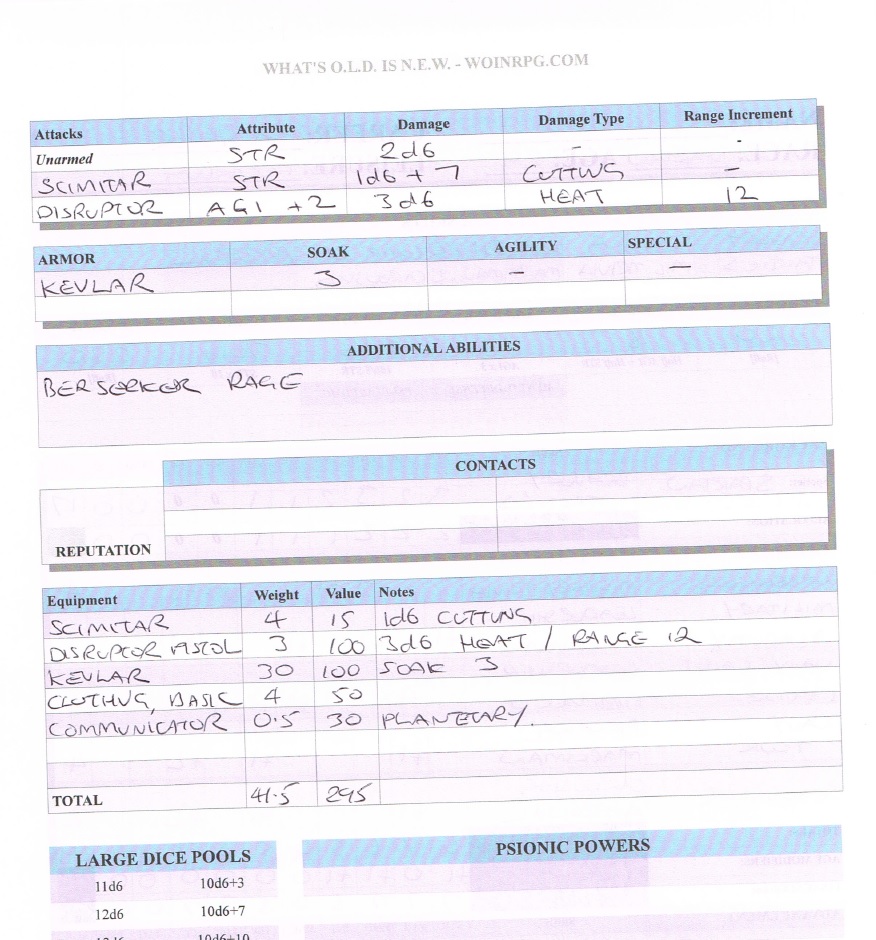 WHAT'S O.L.D. IS N.E.W. - WOINRPG.COM
Attacks Attribute Damage Damage Type Range Increment
Unarmed STR 2d6 - -
SCIMITAR STR 1d6 + 7 CUTTING -
DISRUPTOR AGI +2 3d6 HEAT 12
ARMOR SOAK AGILITY SPECIAL
KEVLAR 3 - -
ADDITIONAL ABILITIES
BERSERKER RAGE
CONTACTS
REPUTATION
Equipment Weight Value Notes
SCIMITAR 4 15 1d6 CUTTING
DISRUPTOR PISTOL 3 100 3d6 HEAT / RANGE 12
KEVLAR 30 100 SOAK 3
CLOTHING, BASIC 4 50
COMMUNICATOR 0.5 30 PLANETARY.
TOTAL 41.5 295
LARGE DICE POOLS PSIONIC POWERS
11d6 10d6+3
12d6 10d6+7
10d6+10